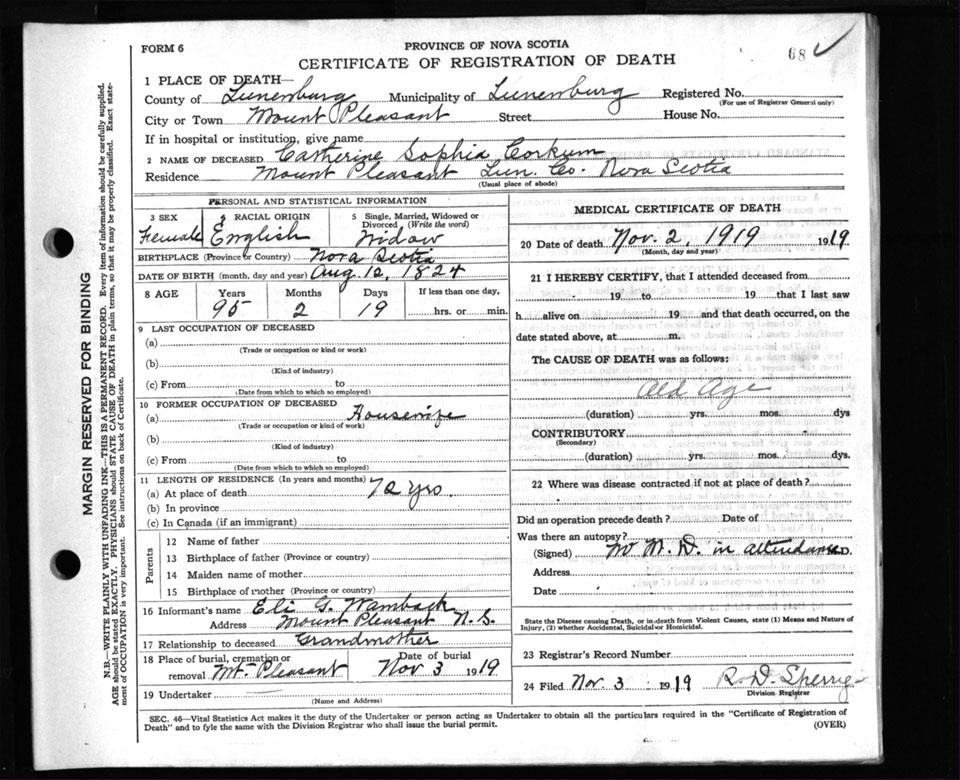 68 ✓
FORM 6
PROVINCE OF NOVA SCOTIA
CERTIFICATE OF REGISTRATION OF DEATH
1 PLACE OF DEATH—
County of Lunenburg Municipality of Lunenburg Registered No.
(For use of Registrar General only)
City or Town Mount Pleasant Street House No.
If in hospital or institution, give name
2 NAME OF DECEASED Catherine Sophia Corkum
Residence Mount Pleasant Lun. Co. Nova Scotia
(Usual place of abode)
PERSONAL AND STATISTICAL INFORMATION
3 SEX Female
RACIAL ORIGIN English
5 Single, Married, Widowed or Divorced (Write the word) Widow
BIRTHPLACE (Province or Country) Nova Scotia
DATE OF BIRTH (month, day and year) Aug. 12, 1824
8 AGE Years 95 Months 2 Days 19 If less than one day, hrs. or min.
9 LAST OCCUPATION OF DECEASED
(a)
(Trade or occupation or kind or work)
(b)
(Kind of industry)
(c) From to
(Date from which to which so employed)
10 FORMER OCCUPATION OF DECEASED
(a) Housewife
(Trade or occupation or kind of work)
(b)
(Kind of industry)
(c) From to
(Date from which to which so employed)
11 LENGTH OF RESIDENCE (In years and months)
(a) At place of death 72 yrs.
(b) In province
(c) In Canada (if an immigrant)
Parents
12 Name of father
13 Birthplace of father (Province or country)
14 Maiden name of mother
15 Birthplace of mother (Province or country)
16 Informant's name Eli G. Wamback
Address Mount Pleasant N.S.
17 Relationship to deceased Grandmother
18 Place of burial, cremation or removal Mt. Pleasant Date of burial Nov 3 1919
19 Undertaker
(Name and Address)
MEDICAL CERTIFICATE OF DEATH
20 Date of death Nov. 2, 1919 1919
(Month, day and year)
21 I HEREBY CERTIFY, that I attended deceased from
19 to 19 that I last saw
h alive on 19 and that death occurred, on the
date stated above, at m.
The CAUSE OF DEATH was as follows:
Old Age
(duration) yrs. mos. dys
CONTRIBUTORY
(Secondary)
(duration) yrs. mos. dys
22 Where was disease contracted if not at place of death?
Did an operation precede death? Date of
Was there an autopsy?
(Signed) No M. D. in attendance M.D.
Address
Date
State the Disease causing Death, or in death from Violent Causes, state (1) Means and Nature of
Injury, (2) whether Accidental, Suicidal or Homicidal.
23 Registrar's Record Number
24 Filed Nov. 3 1919 R. D. Sperry
Division Registrar
SEC. 46—Vital Statistics Act makes it the duty of the Undertaker or person acting as Undertaker to obtain all the particulars required in the "Certificate of Registration of
Death" and to fyle the same with the Division Registrar who shall issue the burial permit.
(OVER)
MARGIN RESERVED FOR BINDING
N.B.—WRITE PLAINLY WITH UNFADING INK—THIS IS A PERMANENT RECORD. Every item of information should be carefully supplied.
AGE should be stated EXACTLY. PHYSICIANS should STATE CAUSE OF DEATH in plain terms, so that it may be properly classified. Exact state-
ment of OCCUPATION is very important. See instructions on back of Certificate.